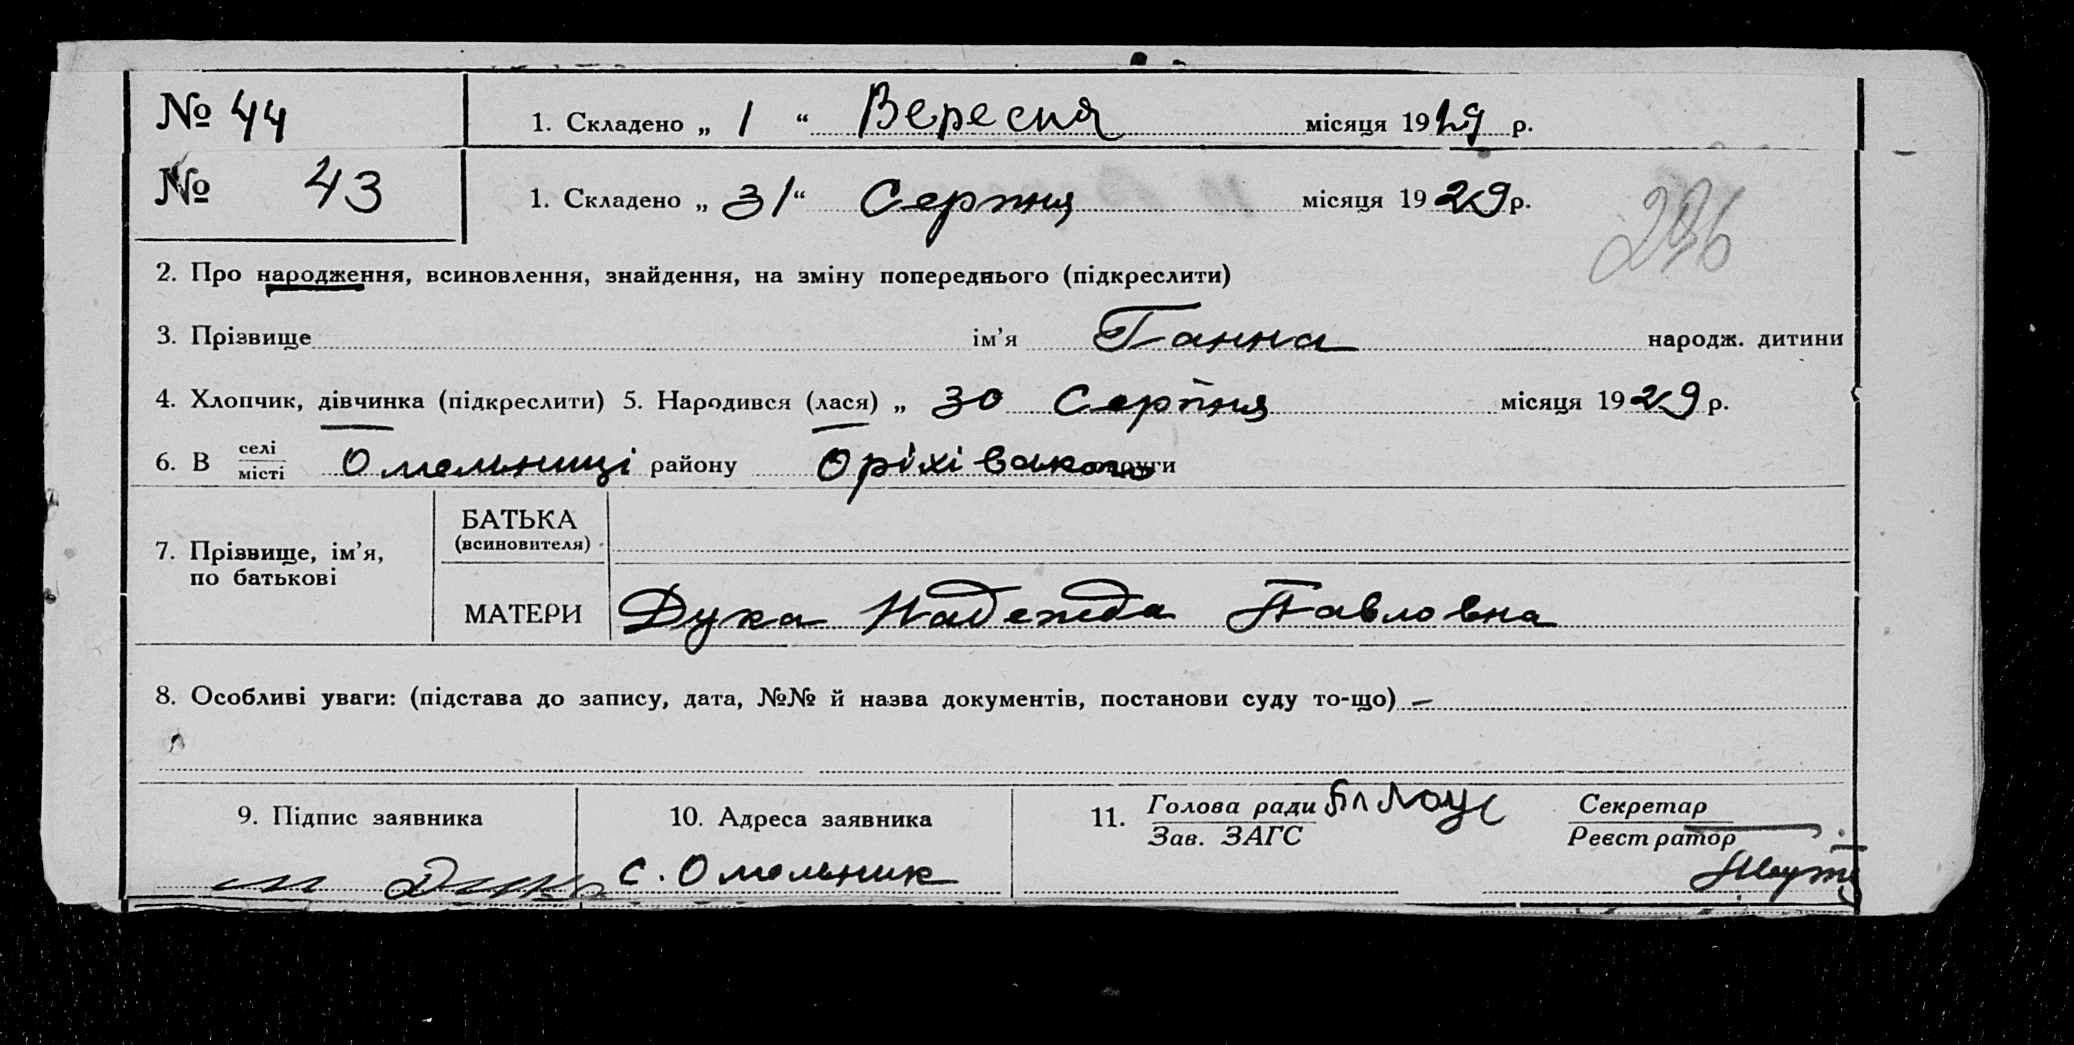 № 44 1. Складено „ 1 “ Вересня місяця 1929 р.
№ 43 1. Складено „ 31 “ Серпня місяця 1929 р.
296
2. Про народження, всиновлення, знайдення, на зміну попереднього (підкреслити)
3. Прізвище ім’я Ганна народж. дитини
4. Хлопчик, дівчинка (підкреслити) 5. Народився (лася) „ 30 Серпня місяця 1929 р.
6. В селі / місті Омельниці району Оріхівского округи
7. Прізвище, ім’я, по батькові
БАТЬКА (всиновителя)
МАТЕРИ Дука Надежда Павловна
8. Особливі уваги: (підстава до запису, дата, №№ й назва документів, постанови суду то-що) —
9. Підпис заявника 10. Адреса заявника 11. Голова ради / Зав. ЗАГС Секретар / Реєстратор
Дука с. Омельник